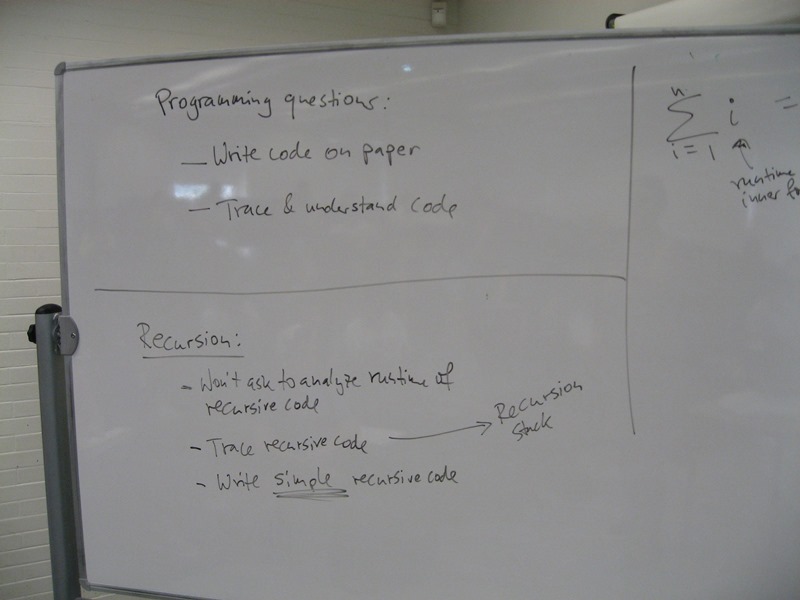 Programming questions:
— Write code on paper
— Trace & understand code
Recursion:
- Won't ask to analyze runtime of
recursive code
- Trace recursive code → Recursion
stack
- Write simple recursive code
n
∑ i =
i = 1
runtime
inner